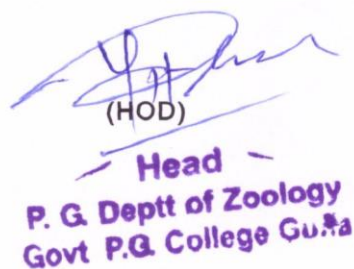 (HOD)
Head
P. G. Deptt of Zoology
Govt P.G. College Guna